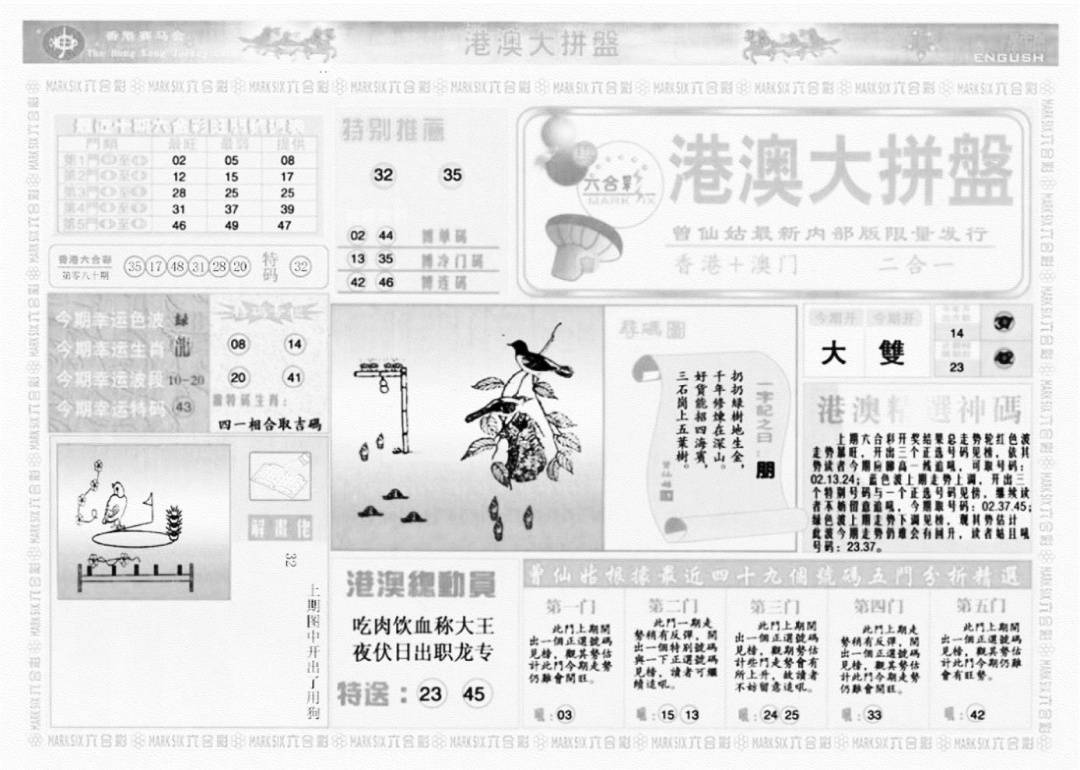 香港赛马会
The Hong Kong Jockey
港澳大拼盤
ENGLISH
MARK SIX 六合彩
門類 最旺 最弱 提供
第1門 至 02 05 08
第2門 至 12 15 17
第3門 至 28 25 25
第4門 至 31 37 39
第5門 至 46 49 47
特别推薦
32 35
02 44 博單碼
13 35 博冷门碼
42 46 博连碼
六合彩
MARK SIX
港澳大拼盤
曾仙姑最新内部版限量发行
香港+澳门 二合一
香港六合彩
第零八十期
35 17 48 31 28 20 特码 32
今期幸运色波 緑
今期幸运生肖 龍
今期幸运波段 10-20
今期幸运特码 43
08 14
20 41
特碼生肖:
四一相合取吉碼
尋碼圖
一字記之曰:朋
扔扔緑樹地生金,
千年修煉在深山。
好貨能招四海賓,
三石岗上五葉樹。
曾仙姑
今期开 今期开
大 雙
14
23
港澳精選神碼
上期六合彩开奖结果总走势轮红色波
走势暴旺,开出三个正选号码见榜,依其
势读者今期应瞄高一线追吼,可取号码:
02.13.24;蓝色波上期走势上调,开出三
个特别号码与一个正选号码见榜,继续读
者不妨留意追吼,今期取号码:02.37.45;
绿色波上期走势下调见榜,观其势估计
此波今期走势仍难会有回升,读者姑且吼
号码:23.37。
解畫佬
32
上期图中开出了用狗
港澳總動員
吃肉饮血称大王
夜伏日出职龙专
特送:23 45
曾仙姑根據最近四十九個號碼五門分析精選
第一门
此門上期開
出一個正選號碼
見榜,觀其勢估
計此門今期走勢
仍難會開旺。
吼:03
第二门
此門一期走
勢稍有反彈,開
出一個特別號碼
與一下正選號碼
見榜,讀者可繼
續追吼。
吼:15 13
第三门
此門上期開
出一個正選號碼
見榜,觀期勢估
計些門走勢會有
所上升,故讀者
不妨留意追吼。
吼:24 25
第四门
此門上期走
勢稍有反彈,開
出一個正選號碼
見榜,觀其勢估
計此門今期走勢
仍難會開旺。
吼:33
第五门
此門上期開
出一個正選號碼
見榜,觀其勢估
計此門今期仍難
會有旺勢。
吼:42